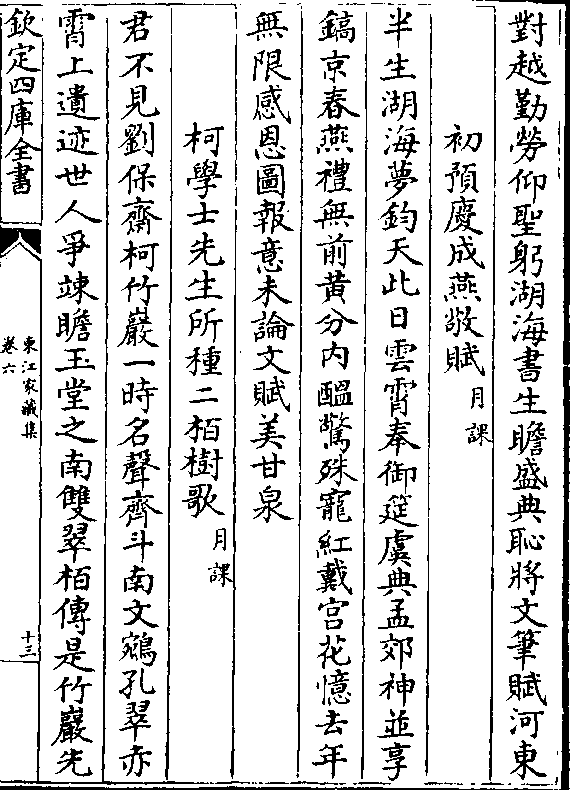 對越勤勞仰聖躬湖海書生瞻盛典恥將文筆賦河東
初預慶成燕敬賦月課
半生湖海夢鈞天此日雲霄奉御筵虞典孟郊神並享
鎬京春燕禮無前黄分内醖驚殊寵紅戴宫花憶去年
無限感恩圖報意未論文賦美甘泉
柯學士先生所種二栢樹歌月課
君不見劉保齋柯竹巖一時名聲齊斗南文鵷孔翠亦
霄上遺迹世人爭竦瞻玉堂之南雙翠栢傳是竹巖先
欽定四庫全書
東江家藏集
卷六
十三